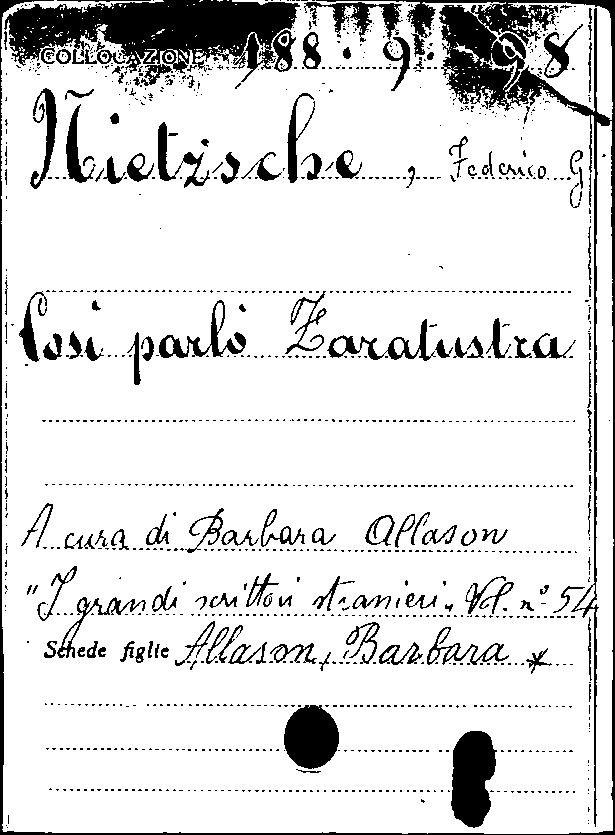 COLLOCAZIONE 188. 9. 98
Nietzsche, Federico G
Così parlò Zaratustra
A cura di Barbara Allason
"I grandi scrittori stranieri" Vol. n° 54
Schede figlie Allason, Barbara *